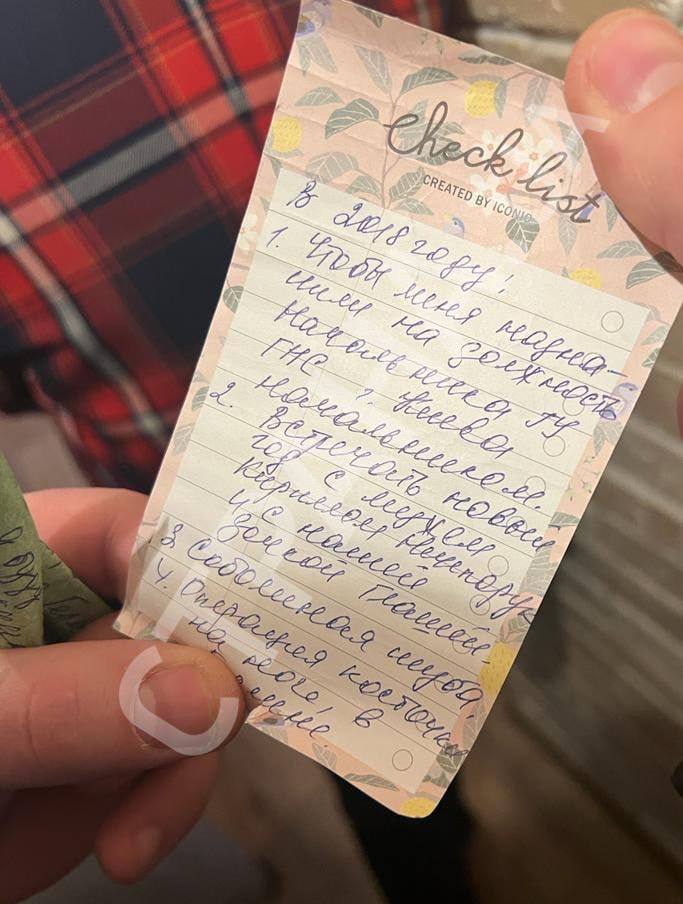 Check list
CREATED BY ICONIC
В 2018 году:
1. Чтобы меня назна-
чили на должность
Начальника ГУ
ГНС г. Киева
начальником.
2. Встречать новый
год с мужем
Кириллом
и с нашей
дочкой
3. Соболиная шуба
4. Операция косточки
на ноге, в